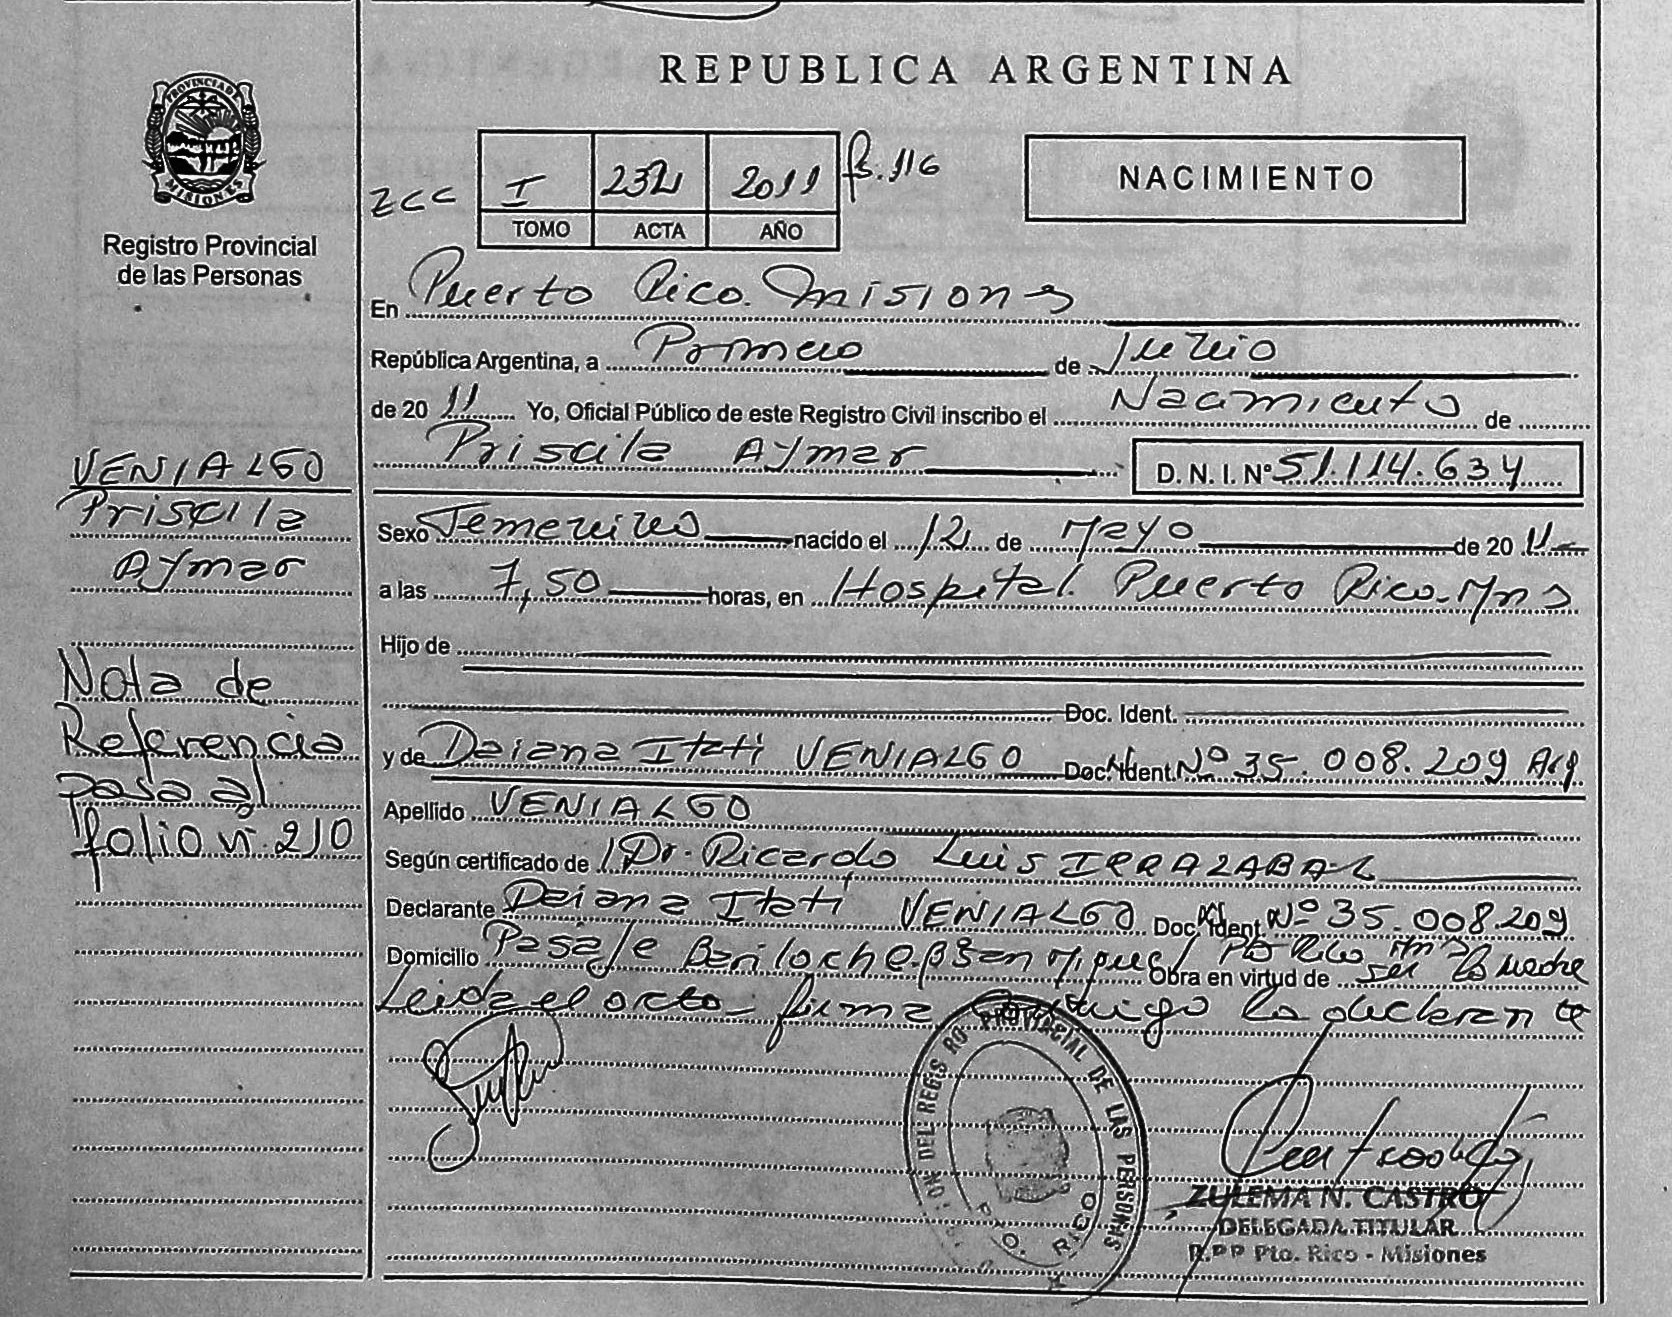 REPUBLICA ARGENTINA
PROVINCIA DE
MISIONES
Registro Provincial
de las Personas
NACIMIENTO
ZCC I 232 2011 fs. 116
TOMO ACTA AÑO
En Puerto Rico. Misiones
República Argentina, a Primero de Junio
de 2011 Yo, Oficial Público de este Registro Civil inscribo el Nacimiento de
Priscila Aymar D. N. I. Nº 51.114.634
VENIALGO
Priscila
Aymar
Sexo Femenino nacido el 12 de Mayo de 2011
a las 7,50 horas, en Hospital. Puerto Rico-Mns
Hijo de
Doc. Ident.
y de Daiana Itati VENIALGO Doc. Ident. Nº 35.008.209 Arg
Nota de
Referencia
pasa al
folio nº 210
Apellido VENIALGO
Según certificado de Dr. Ricardo Luis IRRAZABAL
Declarante Daiana Itati VENIALGO Doc. Ident. Nº 35.008.209
Domicilio Pasaje Bariloche Bº San Miguel Pto Rico Mns Obra en virtud de ser la madre
Leida el acta firma conmigo la declarante
DEL REGISTRO PROVINCIAL DE LAS PERSONAS
PTO. RICO
ZULEMA N. CASTRO
DELEGADA TITULAR
R.PP Pto. Rico - Misiones